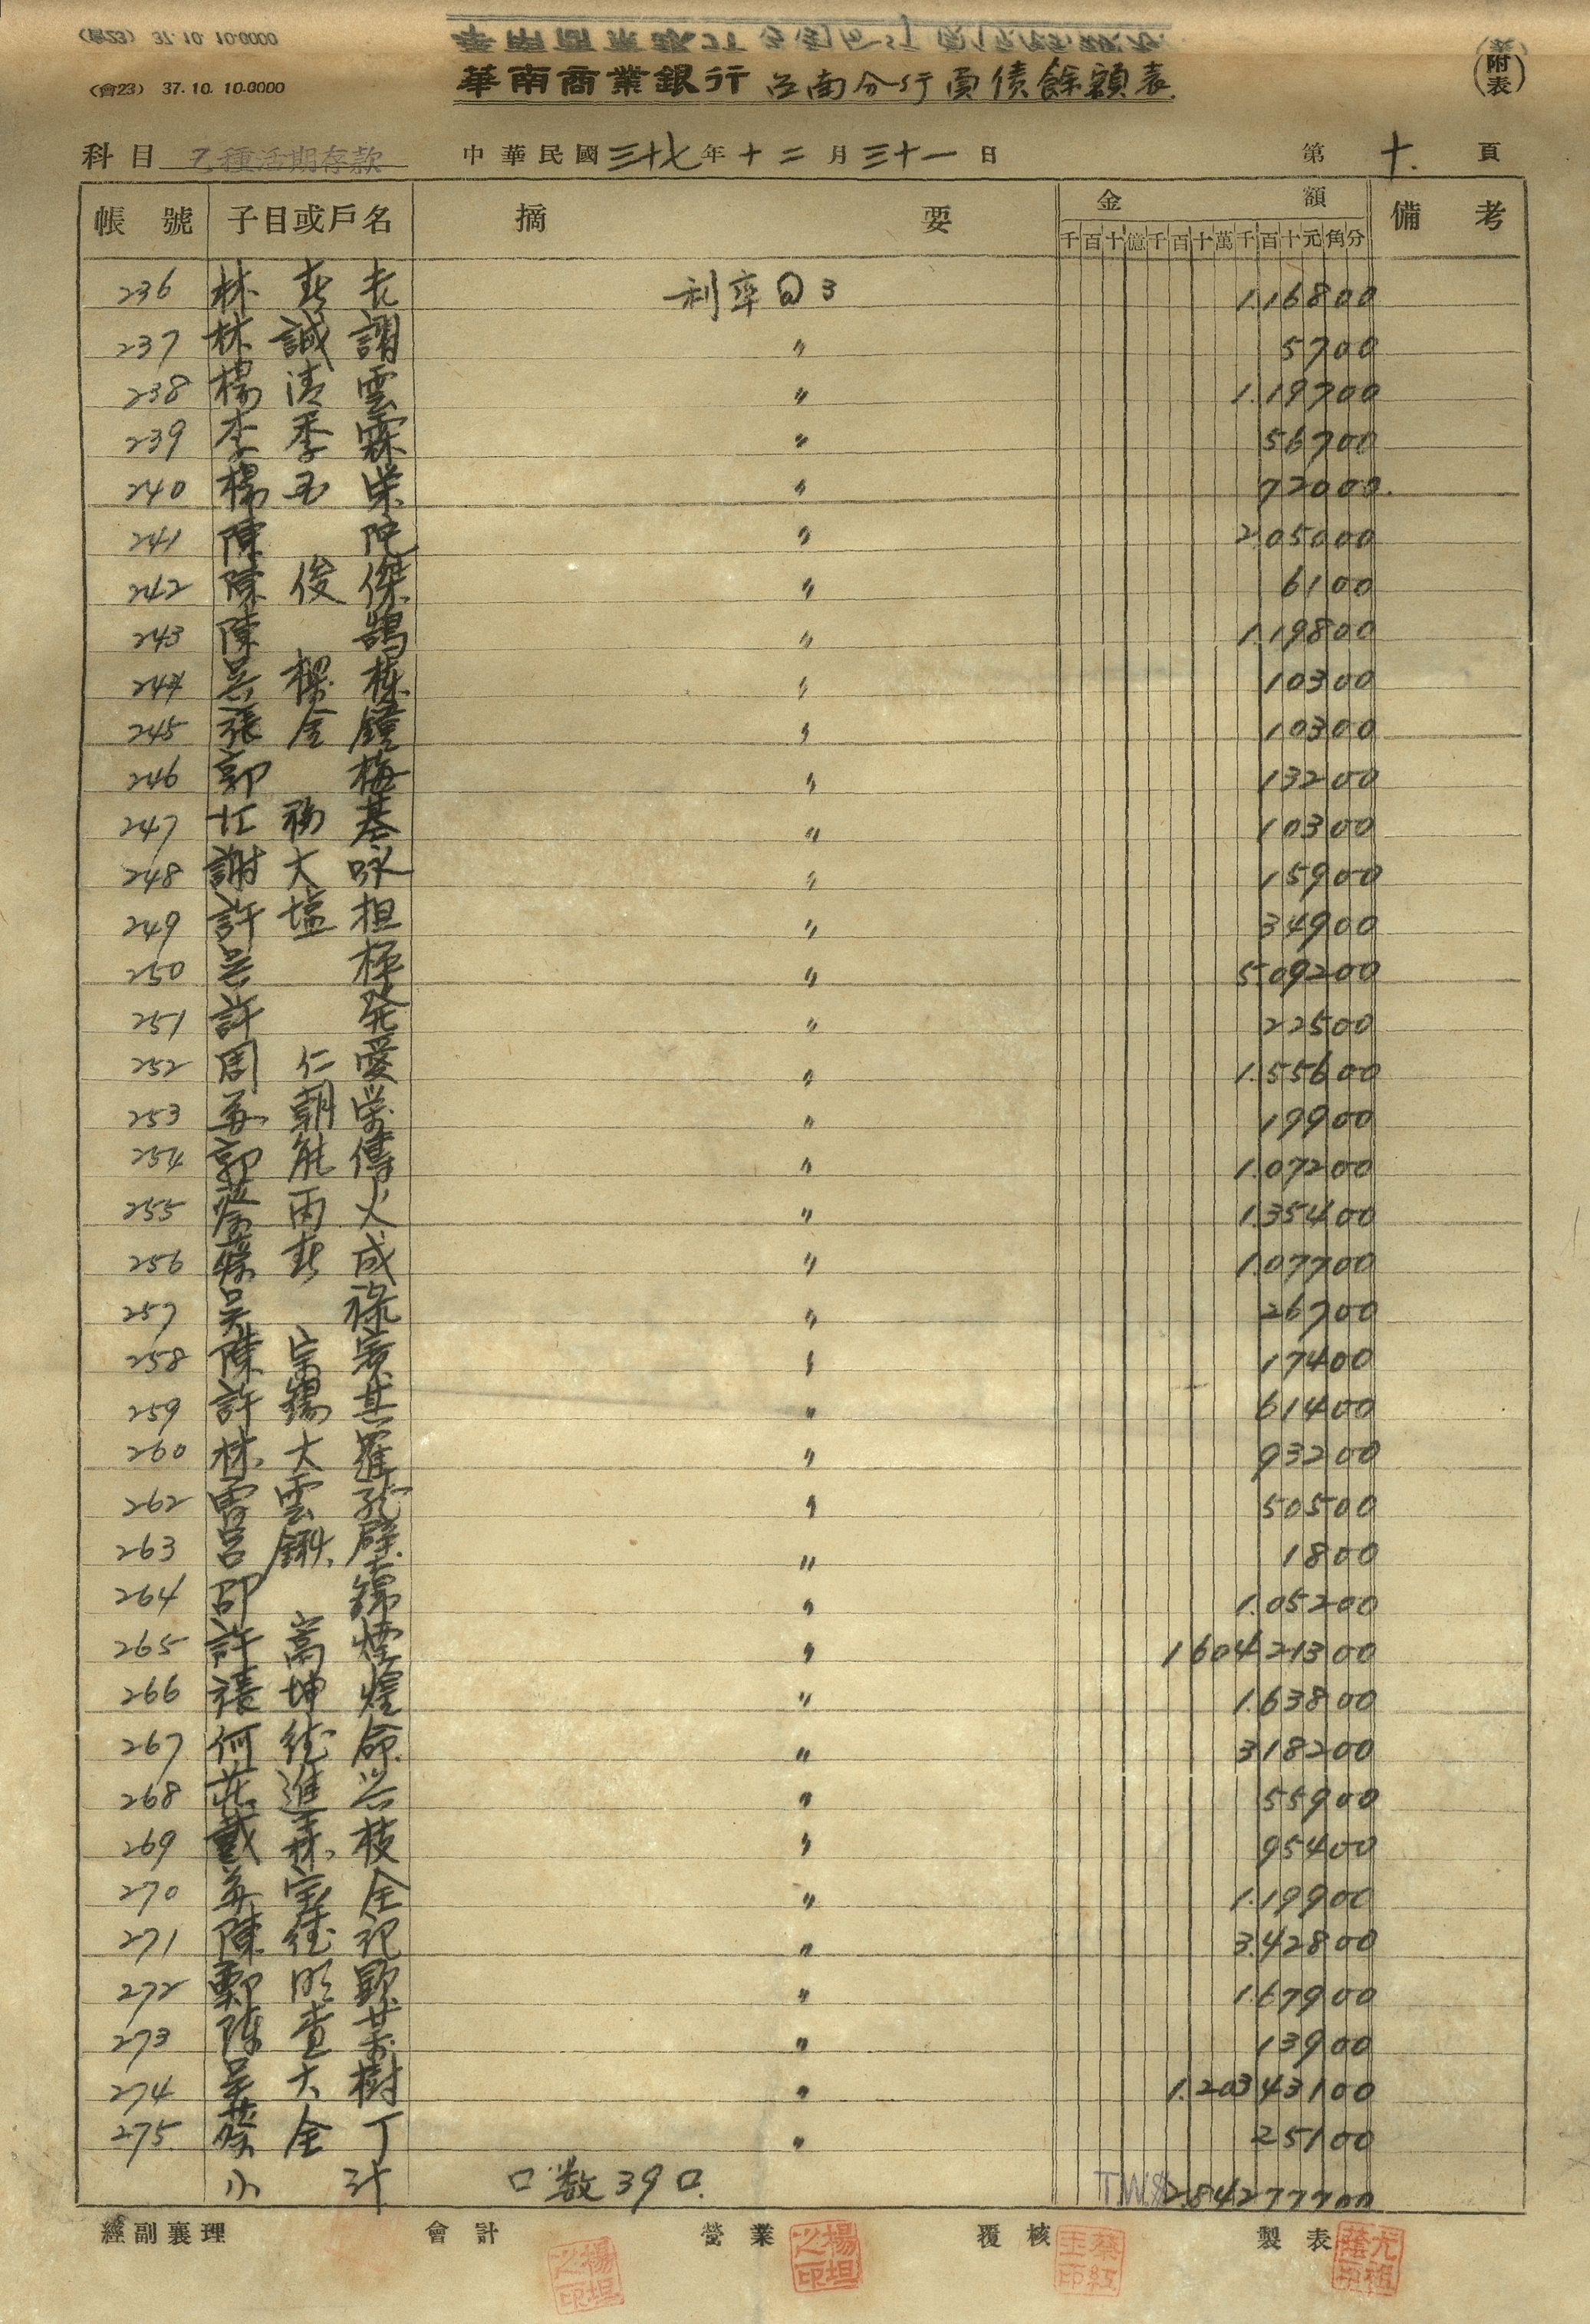 (會23) 37.10.10.0000
華南商業銀行台南分行負債餘額表
(附表)
科目 乙種活期存款 中華民國三十七年十二月三十一日 第十頁
帳號 子目或戶名 摘要 金額 備考
千百十億千百十萬千百十元角分
236 林春 利率@3 1.16800
237 林誠謂 〃 5700
238 楊清雲 〃 1.19700
239 李季霖 〃 56700
240 楊玉柴 〃 72000.
241 陳 〃 2.05000
242 陳俊傑 〃 6100
243 陳鵠 〃 1.19800
244 吳樑棟 〃 10300
245 張金鐘 〃 10300
246 郭梅 〃 13200
247 江福基 〃 10300
248 謝大咏 〃 15900
249 許塩担 〃 34900
250 吳極 〃 5.09200
251 許発 〃 22500
252 周仁愛 〃 1.55600
253 朝榮 〃 19900
254 郭能傳 〃 1.07200
255 丙火 〃 1.35400
256 蔡春成 〃 1.07700
257 吳祿 〃 26700
258 陳宗 〃 17400
259 許錫其 〃 61400
260 林大羅 〃 93200
262 雲 〃 50500
263 呂 〃 1800
264 邵錦 〃 1.05200
265 許嵩煙 〃 160421300
266 張坤煌 〃 1.63800
267 何德命 〃 318200
268 莊進 〃 55900
269 戴森枝 〃 95400
270 宝全 〃 1.19900
271 陳德記 〃 3.42800
272 鄭明顯 〃 1.67900
273 陳查某 〃 13900
274 吳大樹 〃 1.20343100
275 蔡全丁 〃 25100
小計 口数39口. T.W.$2.84277700
經副襄理 會計 營業 覆核 製表
楊坦之印 楊坦之印